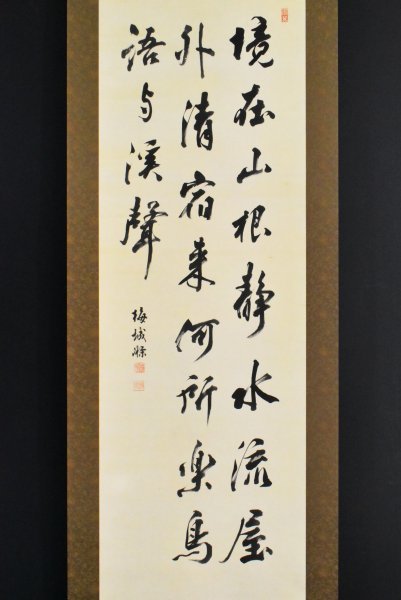 境在山根静水流屋
外清宿来何所楽鳥
語与渓聲
梅城